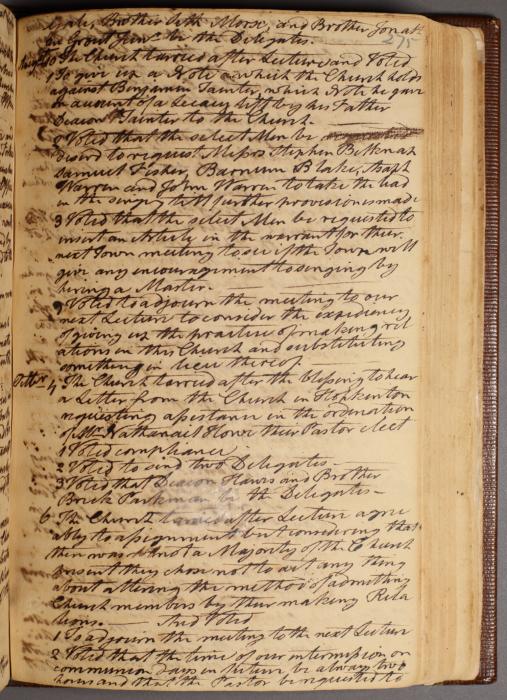 Gale, Brother Seth Morse, and Brother Jonath
an Grout Junr be the Delegates.
275
10 The Church tarried after Lecture and Voted
1 To give up a Note which the Church holds
against Benjamin Tainter, which Note he gave
on account of a Legacy left by his Father
Deacon Tainter to the Church.
2 Voted that the select Men be
desired to request Messrs Stephen Belknap
Samuel Fisher, Barnum Blake, Asaph
Warren and John Warren to take the lead
in the singing till further provision is made
3 Voted that the select Men be requested to
insert an Article in the warrant for their
next Town meeting to see if the Town will
give any encouragement to singing by
hiring a Master.
4 Voted to adjourn the meeting to our
next Lecture to consider the expediency
of giving up the practice of making rel
ations in this Church and substituting
something in lieu thereof.
4 The Church tarried after the blessing to hear
a Letter from the Church in Hopkinton
requesting assistance in the ordination
of Mr Nathanael Howe their Pastor elect
1 Voted compliance
2 Voted to send two Delegates
3 Voted that Deacon Haws and Brother
Breck Parkman be the Delegates—
6 The Church tarried after Lecture agre
ably to assignment but considering that
there was not a Majority of the Church
present they chose not to act any thing
about altering the method of admitting
Church members by their making Rela
tions.— And Voted
1 To adjourn the meeting to the next Lecture
2 Voted that the time of our intermission on
communion days in future be always two
hours and that the Pastor be requested to